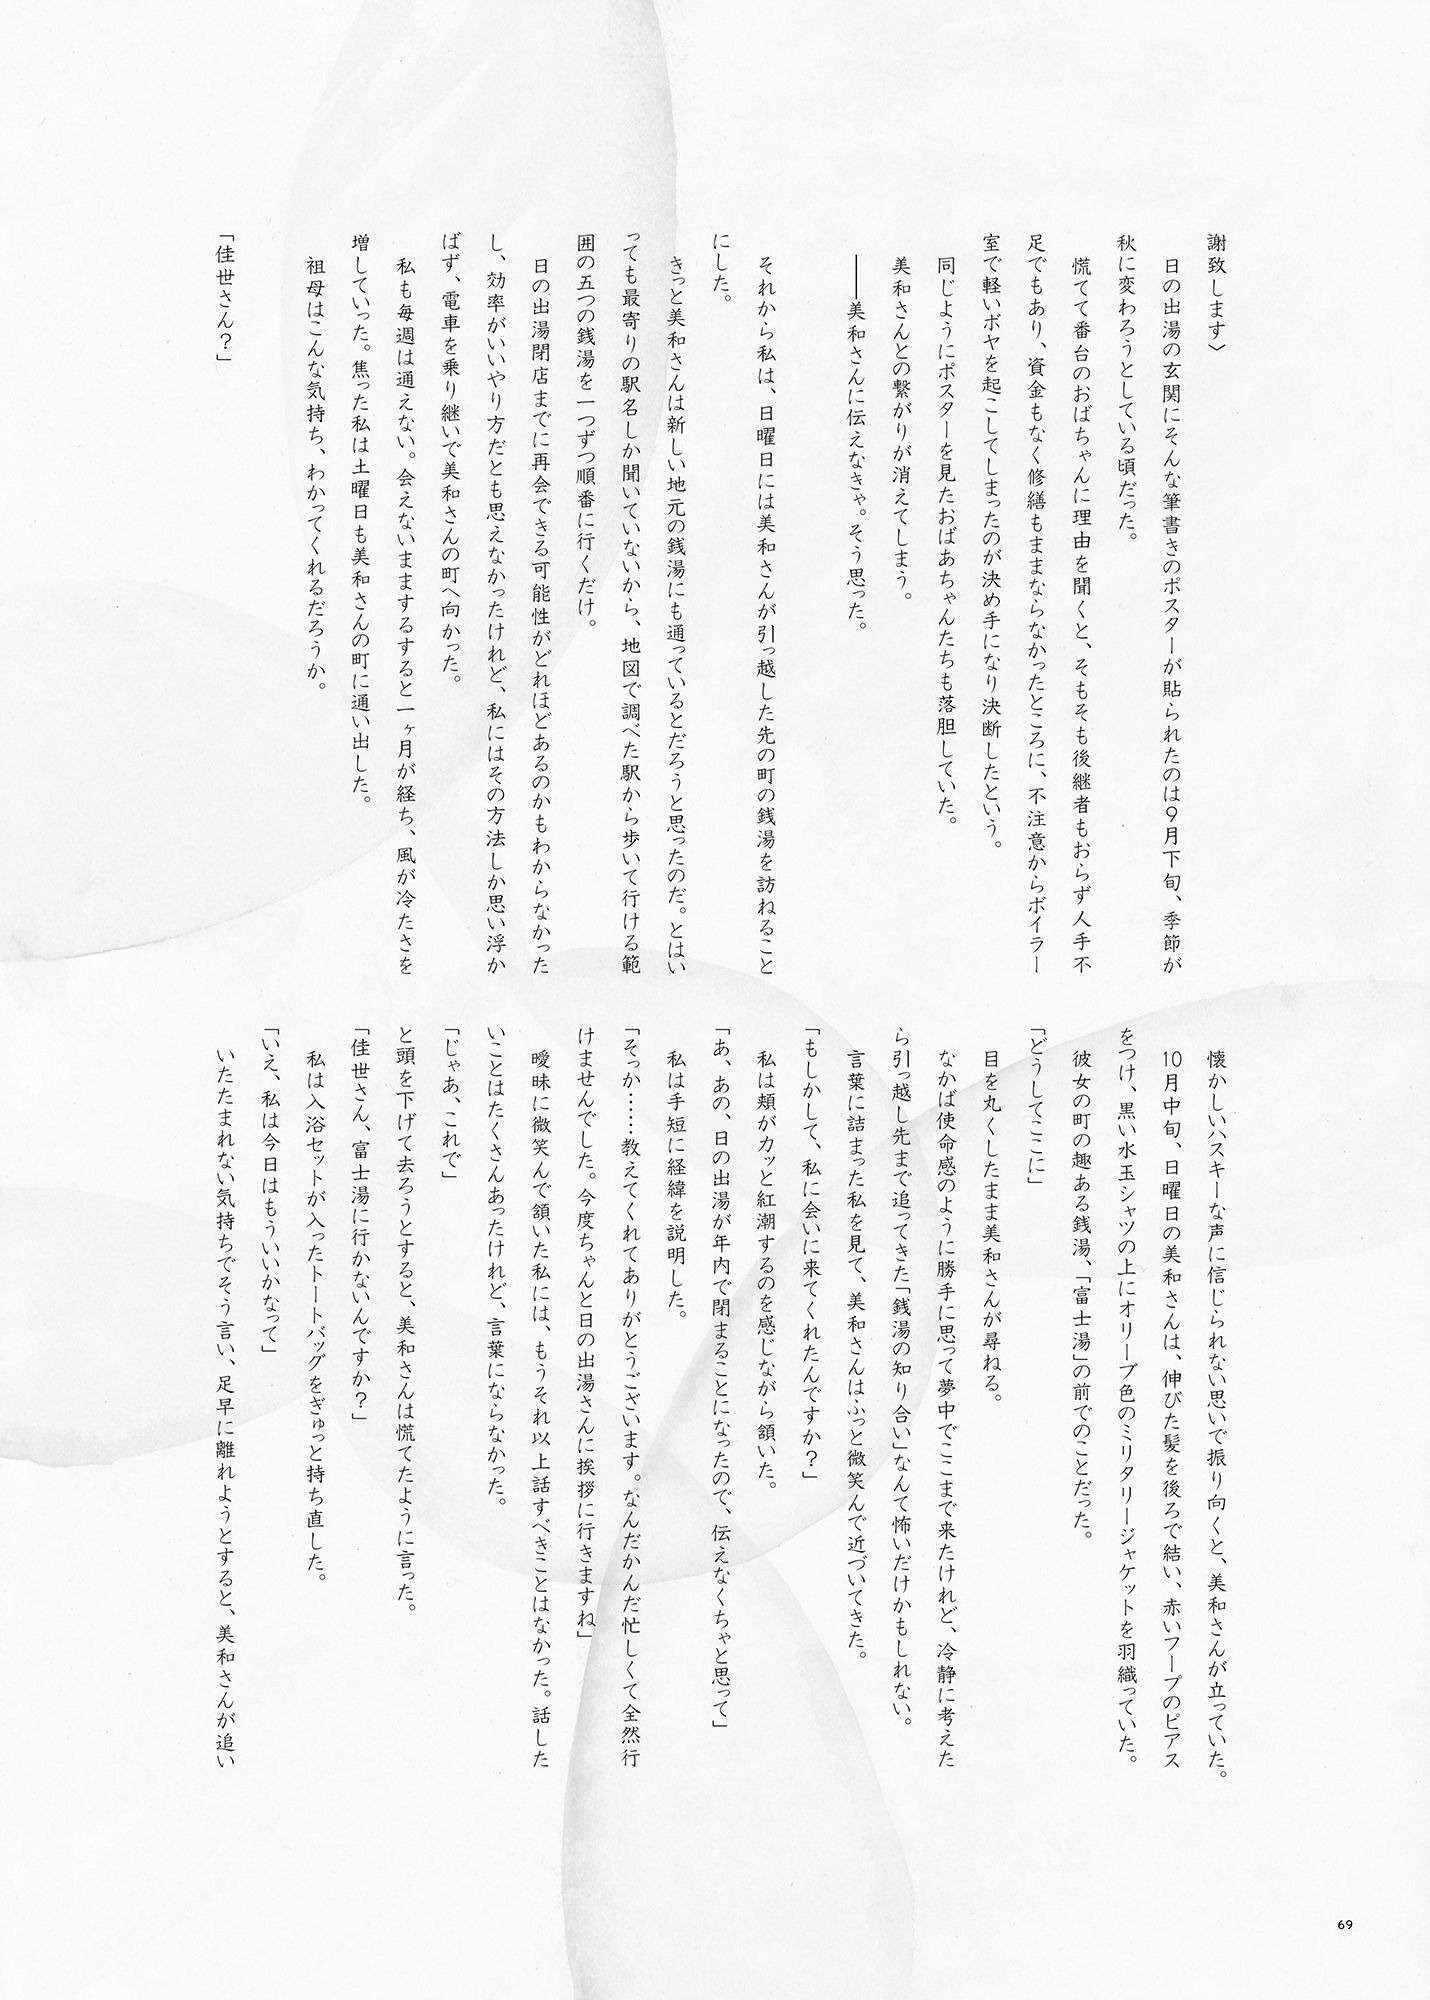 謝致します〉
日の出湯の玄関にそんな筆書きのポスターが貼られたのは9月下旬、季節が
秋に変わろうとしている頃だった。
慌てて番台のおばちゃんに理由を聞くと、そもそも後継者もおらず人手不
足でもあり、資金もなく修繕もままならなかったところに、不注意からボイラー
室で軽いボヤを起こしてしまったのが決め手になり決断したという。
同じようにポスターを見たおばあちゃんたちも落胆していた。
美和さんとの繋がりが消えてしまう。
――美和さんに伝えなきゃ。そう思った。
それから私は、日曜日には美和さんが引っ越した先の町の銭湯を訪ねること
にした。
きっと美和さんは新しい地元の銭湯にも通っているとだろうと思ったのだ。とはい
っても最寄りの駅名しか聞いていないから、地図で調べた駅から歩いて行ける範
囲の五つの銭湯を一つずつ順番に行くだけ。
日の出湯閉店までに再会できる可能性がどれほどあるのかもわからなかった
し、効率がいいやり方だとも思えなかったけれど、私にはその方法しか思い浮か
ばず、電車を乗り継いで美和さんの町へ向かった。
私も毎週は通えない。会えないまますると一ヶ月が経ち、風が冷たさを
増していった。焦った私は土曜日も美和さんの町に通い出した。
祖母はこんな気持ち、わかってくれるだろうか。
「佳世さん？」
懐かしいハスキーな声に信じられない思いで振り向くと、美和さんが立っていた。
10月中旬、日曜日の美和さんは、伸びた髪を後ろで結い、赤いフープのピアス
をつけ、黒い水玉シャツの上にオリーブ色のミリタリージャケットを羽織っていた。
彼女の町の趣ある銭湯、「富士湯」の前でのことだった。
「どうしてここに」
目を丸くしたまま美和さんが尋ねる。
なかば使命感のように勝手に思って夢中でここまで来たけれど、冷静に考えた
ら引っ越し先まで追ってきた「銭湯の知り合い」なんて怖いだけかもしれない。
言葉に詰まった私を見て、美和さんはふっと微笑んで近づいてきた。
「もしかして、私に会いに来てくれたんですか？」
私は頬がカッと紅潮するのを感じながら頷いた。
「あ、あの、日の出湯が年内で閉まることになったので、伝えなくちゃと思って」
私は手短に経緯を説明した。
「そっか……教えてくれてありがとうございます。なんだかんだ忙しくて全然行
けませんでした。今度ちゃんと日の出湯さんに挨拶に行きますね」
曖昧に微笑んで頷いた私には、もうそれ以上話すべきことはなかった。話した
いことはたくさんあったけれど、言葉にならなかった。
「じゃあ、これで」
と頭を下げて去ろうとすると、美和さんは慌てたように言った。
「佳世さん、富士湯に行かないんですか？」
私は入浴セットが入ったトートバッグをぎゅっと持ち直した。
「いえ、私は今日はもういいかなって」
いたたまれない気持ちでそう言い、足早に離れようとすると、美和さんが追い
69